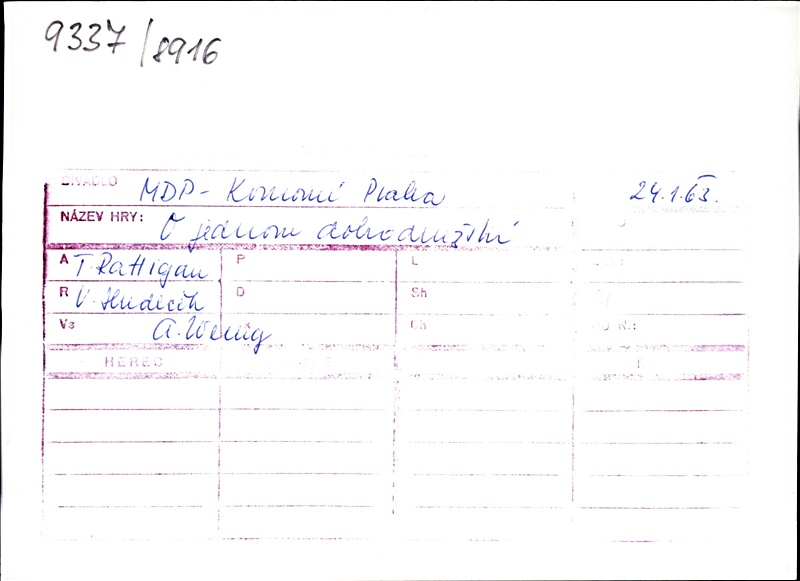 9337/8916
DIVADLO MDP - Komorní Praha 24.1.63.
NÁZEV HRY: O jednom dobrodružství
A T. Rattigan P L
R V. Hudeček D Sh
Vs A. Wenig Ch
HEREC